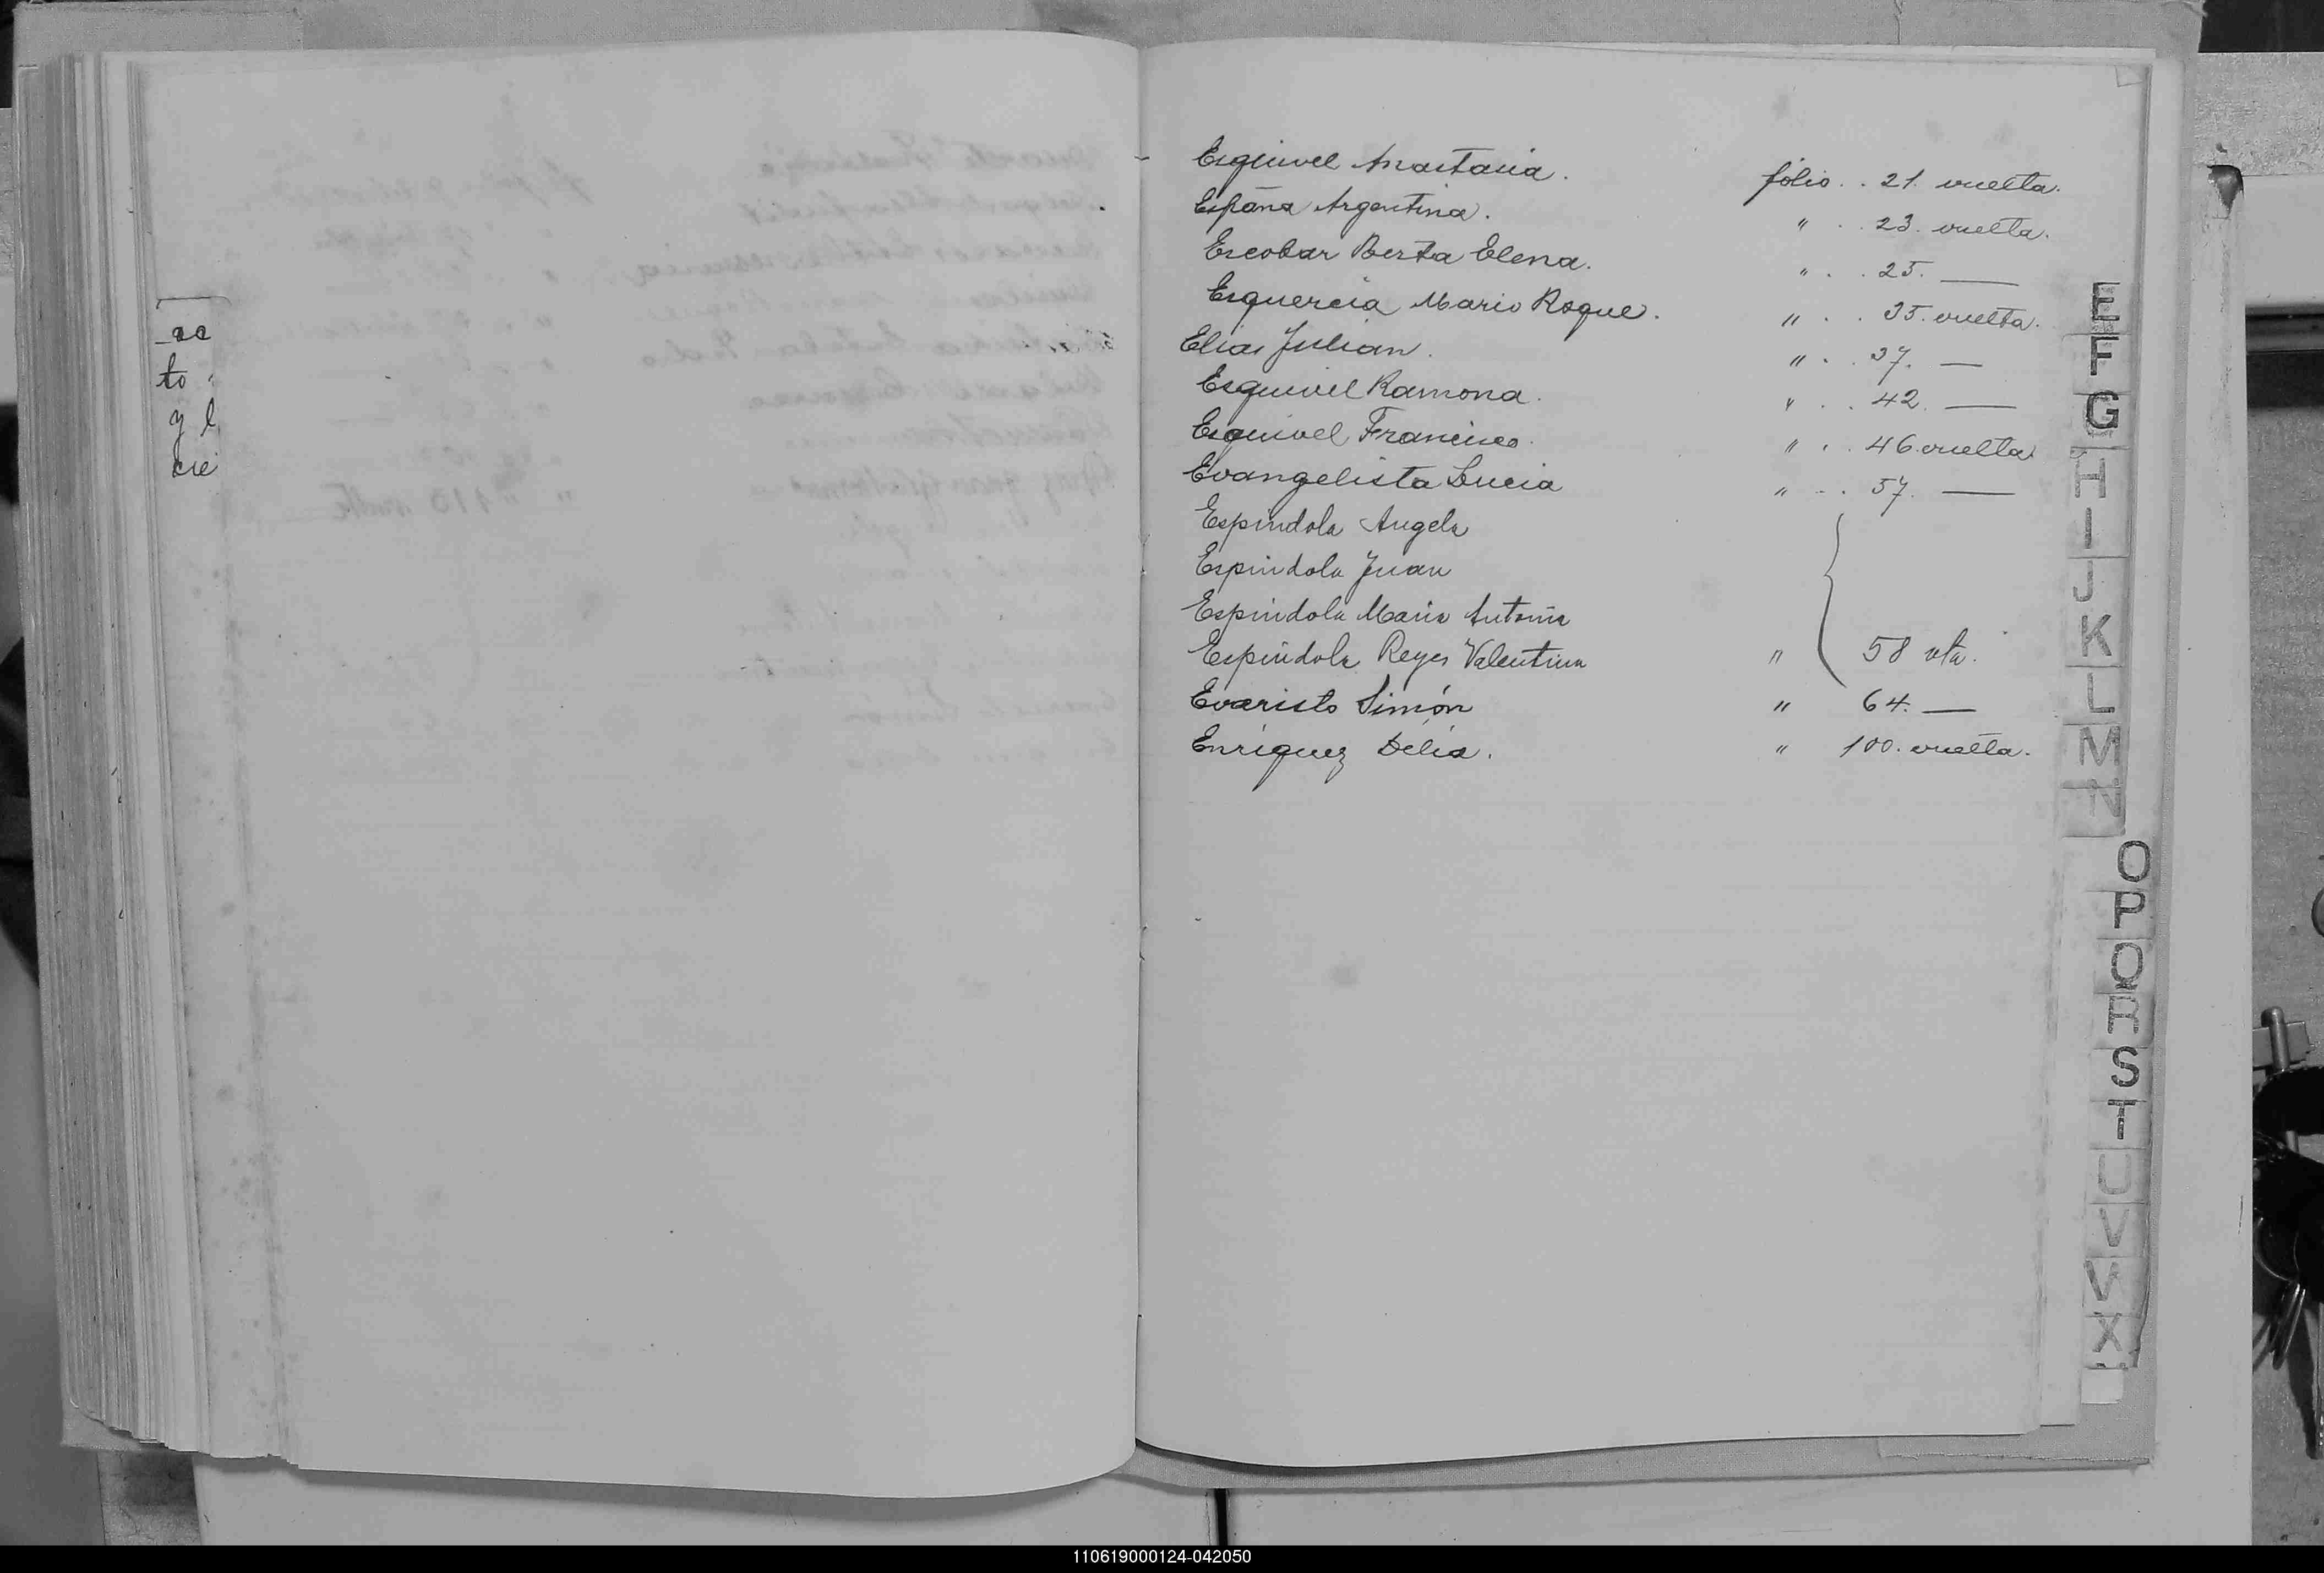 to
y l
cie
Esquivel Anastacia. folio . . 21. vuelta.
España Argentina. " . . 23. vuelta.
Escobar Berta Elena. " . . 25. —
Esquercia Mario Roque. " . . 35. vuelta.
Elias Julian. " . . 37. —
Esquivel Ramona. " . . 42. —
Esquivel Francisco. " . . 46 vuelta.
Evangelista Lucia " . . 57. —
Espindola Angela
Espindola Juan
Espindola Maria Antonia
Espindola Reyes Valentina " 58 vta.
Evaristo Simón " 64. —
Enriquez Delia. " 100. vuelta.
E
F
G
H
I
J
K
L
M
N
O
P
Q
R
S
T
U
V
V
X
110619000124-042050